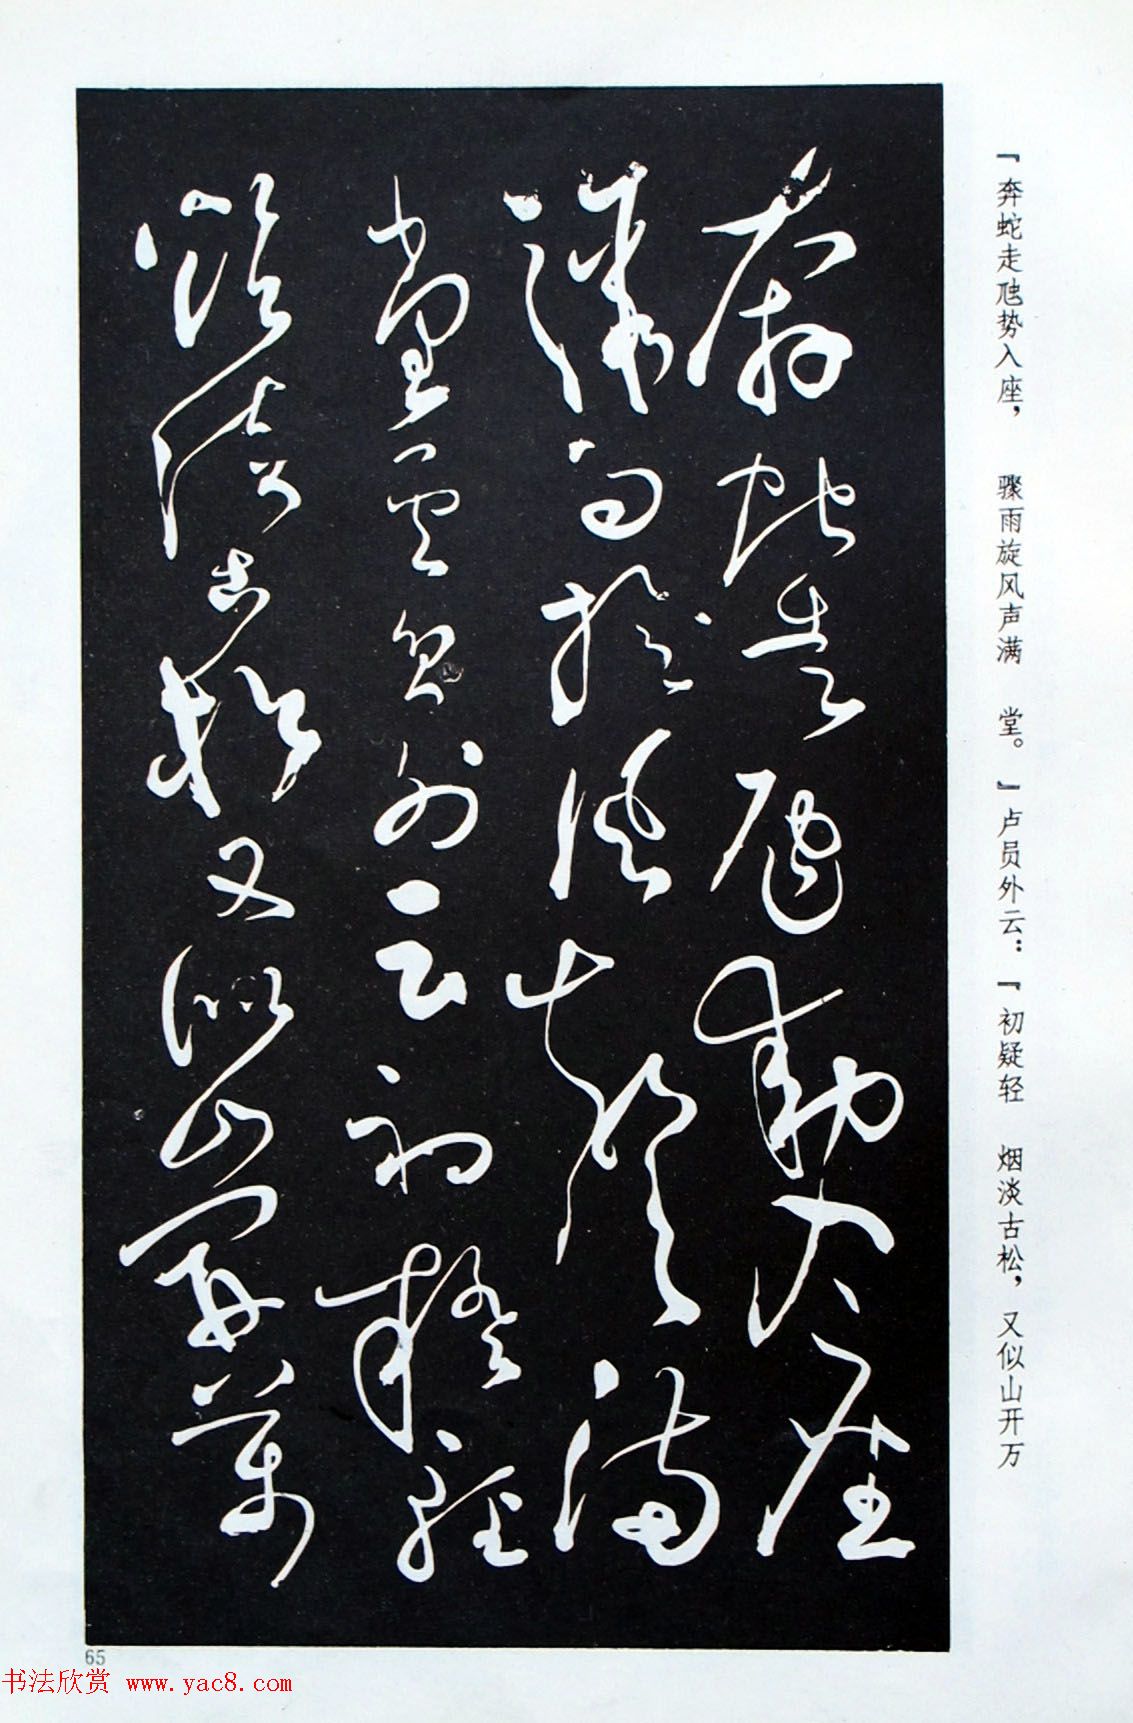 『奔蛇走虺势入座， 骤雨旋风声满 堂。』卢员外云：『初疑轻 烟淡古松，又似山开万
奔蛇走虺勢入座
驟雨旋風聲滿
堂盧員外云初疑輕
煙澹古松又似山開萬
65
书法欣赏 www.yac8.com